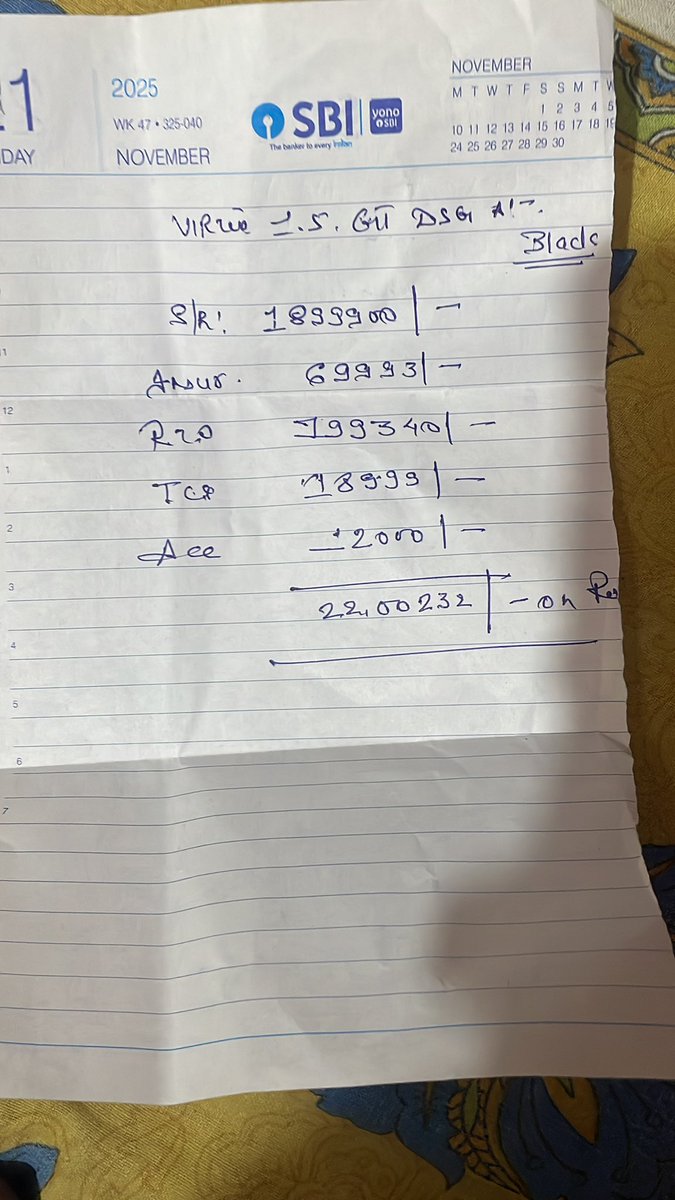 21
2025
NOVEMBER
DAY
WK 47 • 325-040
M T W T F S S M T W
SBI yono SBI
1 2 3 4 5
The banker to every Indian
10 11 12 13 14 15 16 17 18 19
NOVEMBER
24 25 26 27 28 29 30
1.5. GT DSG
Black
S/R: 1899900/-
11
69993/-
12
RTO 199340/-
1
TCS 18999/-
2
Acc 12000/-
3
22,00232/- on
4
5
6
7